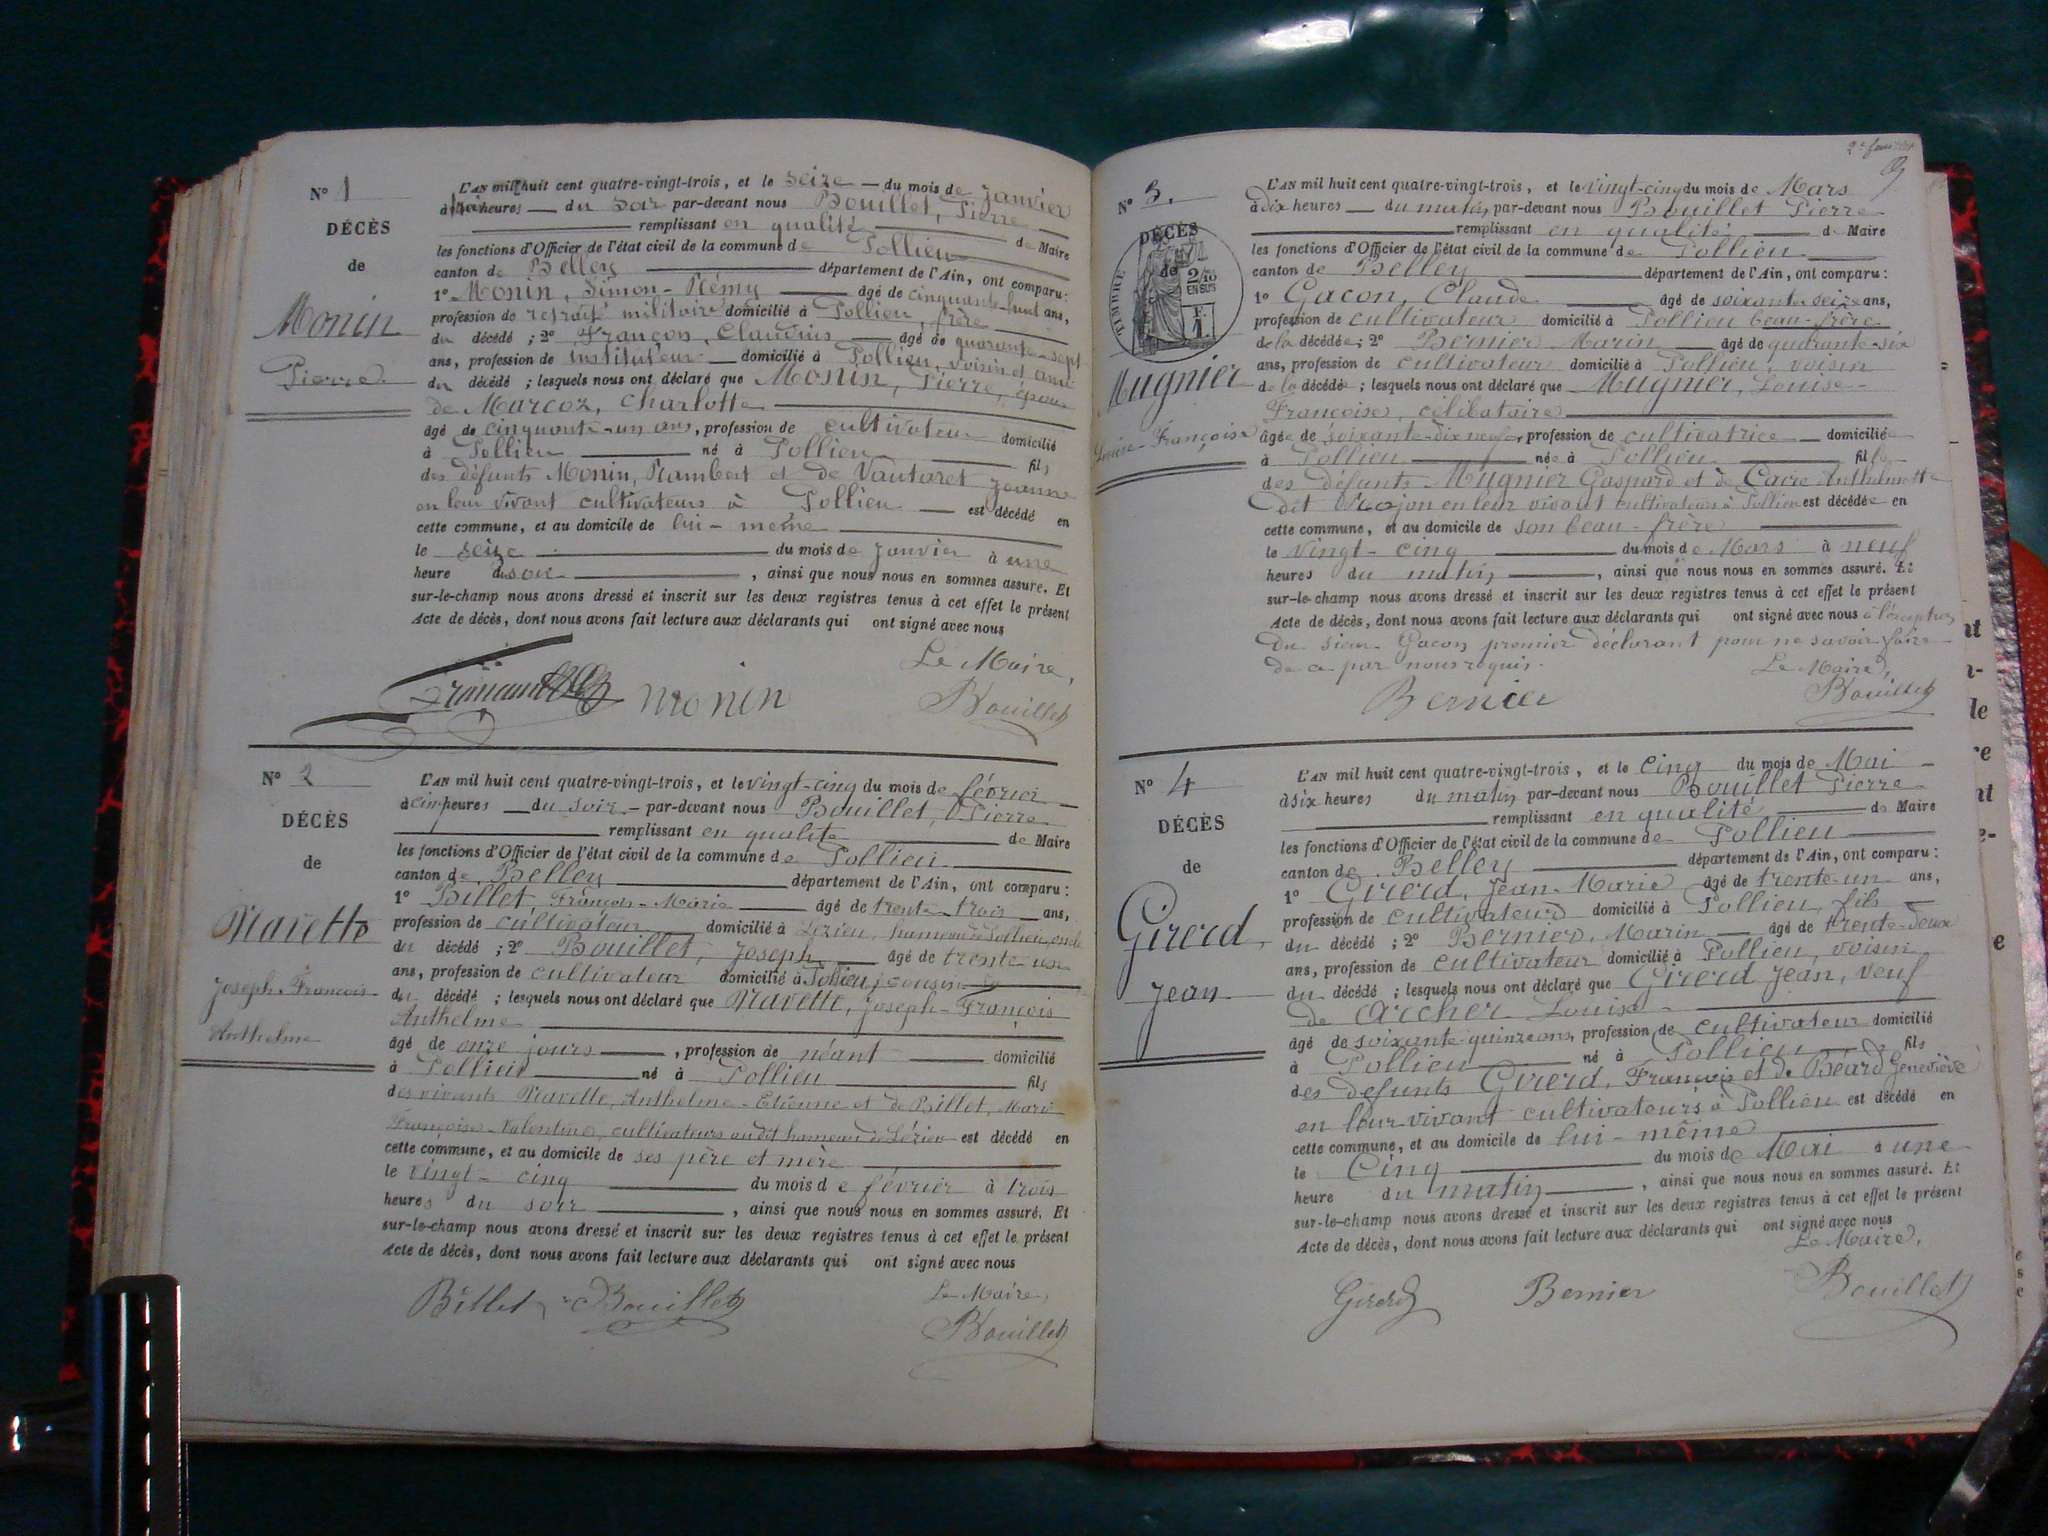 N° 1
DÉCÈS
de
Monin
Pierre
L'AN mil huit cent quatre-vingt-trois, et le seize du mois de Janvier
à heures du soir par-devant nous Bouillet, Pierre
remplissant en qualité de Maire
les fonctions d'Officier de l'état civil de la commune de Pollieu
canton de Belley département de l'Ain, ont comparu :
1° Monin, Simon-Rémy âgé de cinquante-huit ans,
profession de retraité militaire domicilié à Pollieu, frère
du décédé ; 2° Françon, Claudius âgé de quarante-sept
ans, profession de instituteur domicilié à Pollieu, voisin et ami
du décédé ; lesquels nous ont déclaré que Monin, Pierre, époux
de Marcoz, Charlotte
âgé de cinquante-un ans, profession de cultivateur domicilié
à Pollieu né à Pollieu fils
des défunts Monin, Rambert et de Vautaret Jeanne
en leur vivant cultivateurs à Pollieu est décédé en
cette commune, et au domicile de lui-même
le seize du mois de Janvier à une
heure du soir, ainsi que nous nous en sommes assuré. Et
sur-le-champ nous avons dressé et inscrit sur les deux registres tenus à cet effet le présent
Acte de décès, dont nous avons fait lecture aux déclarants qui ont signé avec nous
Le Maire,
monin Bouillet
N° 2
DÉCÈS
de
Navette
Joseph-François
Anthelme
L'AN mil huit cent quatre-vingt-trois, et le vingt-cinq du mois de février
à cinq heures du soir par-devant nous Bouillet, Pierre
remplissant en qualité de Maire
les fonctions d'Officier de l'état civil de la commune de Pollieu
canton de Belley département de l'Ain, ont comparu :
1° Billet, François-Marie âgé de trente-trois ans,
profession de cultivateur domicilié à Lézieu, hameau de Pollieu, oncle
du décédé ; 2° Bouillet, Joseph âgé de trente-un
ans, profession de cultivateur domicilié à Pollieu, cousin
du décédé ; lesquels nous ont déclaré que Navette, Joseph-François
Anthelme
âgé de onze jours, profession de néant domicilié
à Pollieu né à Pollieu fils
des vivants Navette, Anthelme-Etienne et de Billet, Marie
Françoise-Valentine, cultivateurs audit hameau de Lézieu est décédé en
cette commune, et au domicile de ses père et mère
le vingt-cinq du mois de février à trois
heures du soir, ainsi que nous nous en sommes assuré. Et
sur-le-champ nous avons dressé et inscrit sur les deux registres tenus à cet effet le présent
Acte de décès, dont nous avons fait lecture aux déclarants qui ont signé avec nous
Le Maire,
Billet Bouillet Bouillet
2e feuillet
N° 3.
DÉCÈS
de
TIMBRE
2/10
EN SUS
F.
1.
Mugnier
Louise-Françoise
L'AN mil huit cent quatre-vingt-trois, et le vingt-cinq du mois de Mars
à dix heures du matin par-devant nous Bouillet Pierre
remplissant en qualité de Maire
les fonctions d'Officier de l'état civil de la commune de Pollieu
canton de Belley département de l'Ain, ont comparu :
1° Gacon, Claude âgé de soixante-seize ans,
profession de cultivateur domicilié à Pollieu beau-frère
de la décédée ; 2° Bernier Marin âgé de quarante-six
ans, profession de cultivateur domicilié à Pollieu, voisin
de la décédée ; lesquels nous ont déclaré que Mugnier, Louise-
Françoise, célibataire
âgée de soixante-dix neuf, profession de cultivatrice domiciliée
à Pollieu née à Pollieu fille
des défunts Mugnier Gaspard et de Caire Anthelmette
dit en leur vivant cultivateurs à Pollieu est décédée en
cette commune, et au domicile de son beau-frère
le vingt-cinq du mois de Mars à neuf
heures du matin, ainsi que nous nous en sommes assuré. Et
sur-le-champ nous avons dressé et inscrit sur les deux registres tenus à cet effet le présent
Acte de décès, dont nous avons fait lecture aux déclarants qui ont signé avec nous à l'exception
du sieur Gacon premier déclarant pour ne savoir faire
de ce par nous requis.
Le Maire,
Bernier Bouillet
N° 4
DÉCÈS
de
Girerd,
Jean
L'AN mil huit cent quatre-vingt-trois, et le cinq du mois de Mai
à six heures du matin par-devant nous Bouillet Pierre
remplissant en qualité de Maire
les fonctions d'Officier de l'état civil de la commune de Pollieu
canton de Belley département de l'Ain, ont comparu :
1° Girerd, Jean-Marie âgé de trente-un ans,
profession de cultivateur domicilié à Pollieu, fils
du décédé ; 2° Bernier, Marin âgé de trente-deux
ans, profession de cultivateur domicilié à Pollieu, voisin
du décédé ; lesquels nous ont déclaré que Girerd Jean, veuf
de Archer Louise
âgé de soixante-quinze ans, profession de cultivateur domicilié
à Pollieu né à Pollieu fils
des défunts Girerd, François et de Béard Geneviève
en leur vivant cultivateurs à Pollieu est décédé en
cette commune, et au domicile de lui-même
le Cinq du mois de Mai à une
heure du matin, ainsi que nous nous en sommes assuré. Et
sur-le-champ nous avons dressé et inscrit sur les deux registres tenus à cet effet le présent
Acte de décès, dont nous avons fait lecture aux déclarants qui ont signé avec nous
Le Maire,
Girerd Bernier Bouillet